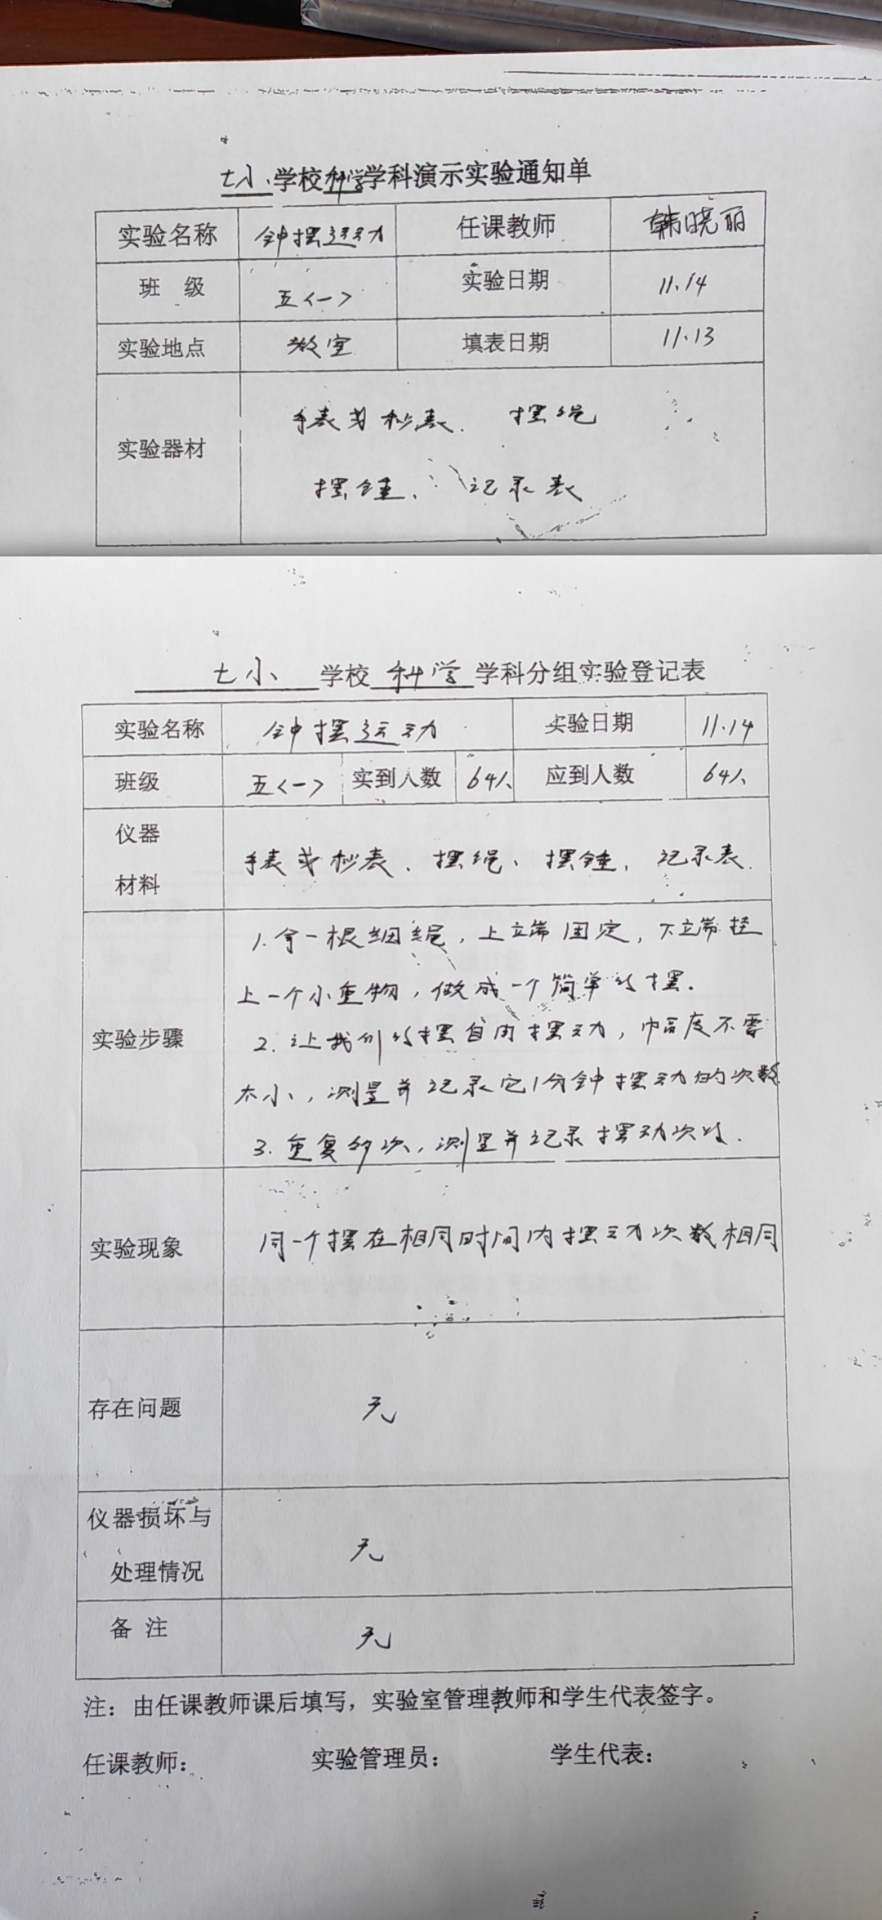 七小学校科学学科演示实验通知单
实验名称 钟摆运动 任课教师 韩晓丽
班 级 五<一> 实验日期 11.14
实验地点 教室 填表日期 11.13
手表或秒表、摆绳
实验器材
摆锤、记录表
七小 学校 科学 学科分组实验登记表
实验名称 钟摆运动 实验日期 11.14
班级 五<一> 实到人数 64人 应到人数 64人
仪器
手表或秒表、摆绳、摆锤、记录表.
材料
1.拿一根细绳,上端固定,下端挂
上一个小重物,做成一个简单的摆.
实验步骤
2.让我们的摆自由摆动,幅度不要
太小,测量并记录它1分钟摆动的次数
3.重复多次,测量并记录摆动次数.
实验现象 同一个摆在相同时间内摆动次数相同
存在问题 无
仪器损坏与
无
处理情况
备 注 无
注:由任课教师课后填写,实验室管理教师和学生代表签字。
任课教师: 实验管理员: 学生代表: